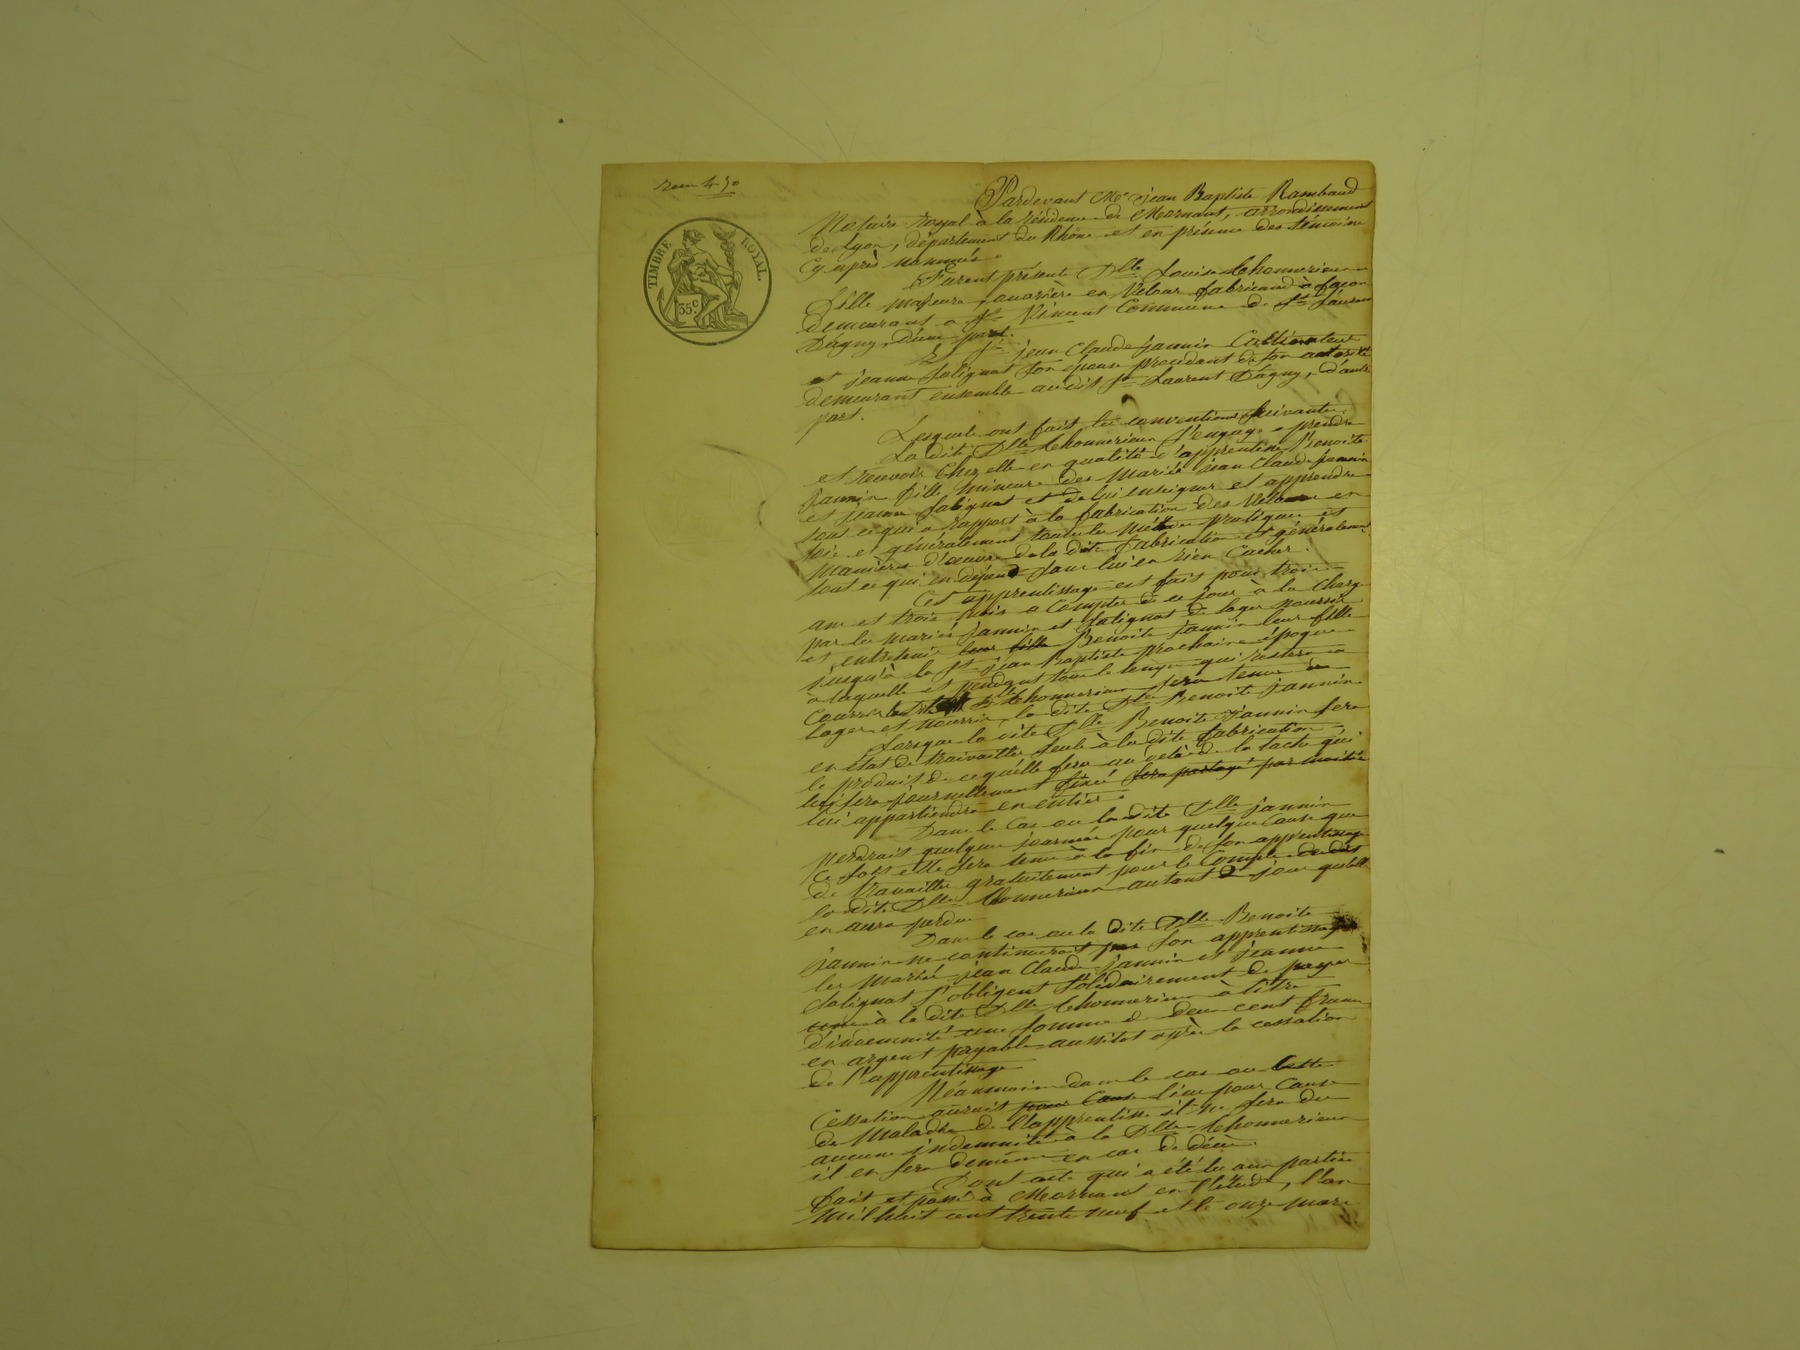 TIMBRE ROYAL
35 c.
Pardevant Me jean Baptiste Rambaud
Notaire royal à la résidence de Mornant, arrondissement
de Lyon, département du Rhône et en présence des témoins
Cy après nommés.
Furent présents Dlle Louise
fille majeure ouvrière en Velour fabricand à façon
demeurant a St Vincent Commune de St Laurent
Dagny, d'une part.
Et Sr jean Claude jannin Cultivateur
et jeanne Saliqnat son épouse procedant de son autorité
demeurant ensemble audit St Laurent Dagny, d'autre
part.
Lesquels ont fait les conventions suivantes.
La dite Dlle s'engage a prendre
et recevoir Chez elle en qualité d'apprentisse Benoite
jannin fille mineure des Mariés jean Claude jannin
et jeanne Saliqnat et de lui enseigner et apprendre
tout ce qui a rapport à la fabrication des Velours en
soie et généralement toutes les pratiques et
Manières d'œuvre de la dite fabrication et généralement
tout ce qui en dépend sans lui en rien Cacher.
Cet apprentissage est fait pour trois
ans et trois mois a Compter de ce jour à la Charge
par les mariés jannin et Saliqnat de loger nourrir
et entretenir leur fille Benoite jannin leur fille
jusqu'à la St jean Baptiste prochaine époque
à laquelle et pendant tout le temps qui restera à
Courrir la Dlle sera tenue de
loger et nourrir la dite Dlle Benoite jannin.
Lorsque la dite Dlle Benoite Jannin sera
en état de travailler seule à la dite fabrication
le produit de ce qu'elle fera au delà de la tache qui
lui sera journellement fixée sera partagé par moitié
lui appartiendra en entier.
Dans le Cas ou la dite Dlle jannin
perdrait quelques journées pour quelque Cause que
Ce soit elle sera tenue à la fin de son apprentissage
de travailler gratuitement pour le Compte de dit
la dite Dlle autant de jour qu'elle
en aura perdue
Dans le cas ou la dite Dlle Benoite
jannin ne continuerait pas son apprentissage
les Mariés jean Claude jannin et jeanne
Saliqnat s'obligent solidairement de payer
à la dite Dlle à titre
d'indemnité une somme de deux cent francs
en argent payable aussitot après la cessation
de l'apprentissage
Néanmoins dans le cas ou Cette
Cessation aurait pour Cause lieu pour Cause
de Maladie de l'apprentisse il ne sera du
aucune indemnité à la Dlle
il en sera demême en cas de décès.
Dont acte qui a été lu aux parties
fait et passé à Mornant en l'étude, l'an
Mil huit cent trente neuf et le onze mars